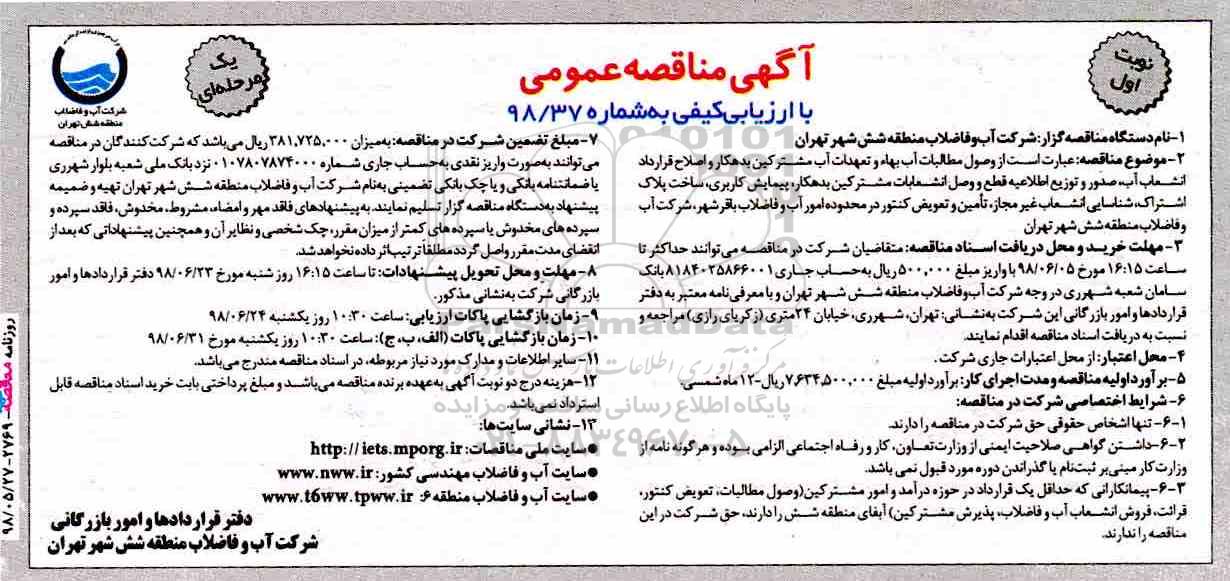 نوبت
اول
آگهی مناقصه عمومی
با ارزیابی کیفی به‌شماره ۹۸/۳۷
یک
مرحله‌ای
شرکت آب و فاضلاب
منطقه شش تهران
۱-نام دستگاه مناقصه گزار: شرکت آب‌وفاضلاب منطقه شش شهر تهران
۲-موضوع مناقصه: عبارت است از وصول مطالبات آب بهاء و تعهدات آب مشترکین بدهکار و اصلاح قرارداد
انشعاب آب، صدور و توزیع اطلاعیه قطع و وصل انشعابات مشترکین بدهکار، پیمایش کاربری، ساخت پلاک
اشتراک، شناسایی انشعاب غیر مجاز، تأمین و تعویض کنتور در محدوده امور آب و فاضلاب باقرشهر، شرکت آب
وفاضلاب منطقه شش شهر تهران
۳- مهلت خرید و محل دریافت اسناد مناقصه: متقاضیان شرکت در مناقصه می‌توانند حداکثر تا
ساعت ۱۶:۱۵ مورخ ۹۸/۰۶/۰۵ با واریز مبلغ ۵۰۰,۰۰۰ ریال به‌حساب جاری ۸۱۸۴۰۲۵۸۶۶۰۰۱ بانک
سامان شعبه شهرری در وجه شرکت آب‌وفاضلاب منطقه شش شهر تهران و با معرفی‌نامه معتبر به دفتر
قراردادها و امور بازرگانی این شرکت به‌نشانی: تهران، شهرری، خیابان ۲۴متری (زکریای رازی) مراجعه و
نسبت به دریافت اسناد مناقصه اقدام نمایند.
۴- محل اعتبار: از محل اعتبارات جاری شرکت.
۵- برآورد اولیه مناقصه و مدت اجرای کار: برآورد اولیه مبلغ ۷,۶۳۴,۵۰۰,۰۰۰ ریال-۱۲ ماه شمسی.
۶- شرایط اختصاصی شرکت در مناقصه:
۶-۱- تنها اشخاص حقوقی حق شرکت در مناقصه را دارند.
۶-۲-داشتن گواهی صلاحیت ایمنی از وزارت تعاون، کار و رفاه اجتماعی الزامی بوده و هرگونه نامه از
وزارت کار مبنی بر ثبت‌نام یا گذراندن دوره مورد قبول نمی باشد.
۶-۳-پیمانکارانی که حداقل یک قرارداد در حوزه درآمد و امور مشترکین(وصول مطالبات، تعویض کنتور،
قرائت، فروش انشعاب آب و فاضلاب، پذیرش مشترکین) آبفای منطقه شش را دارند، حق شرکت در این
مناقصه را ندارند.
۷-مبلغ تضمین شرکت در مناقصه: به‌میزان ۳۸۱,۷۲۵,۰۰۰ ریال می‌باشد که شرکت‌کنندگان در مناقصه
می‌توانند به‌صورت واریز نقدی به‌حساب جاری شماره ۰۱۰۷۸۰۷۸۷۴۰۰۰ نزد بانک ملی شعبه بلوار شهرری
یا ضمانتنامه بانکی و یا چک بانکی تضمینی به‌نام شرکت آب و فاضلاب منطقه شش شهر تهران تهیه و ضمیمه
پیشنهاد به‌دستگاه مناقصه گزار تسلیم نمایند. به‌پیشنهادهای فاقد مهر و امضاء، مشروط، مخدوش، فاقد سپرده و
سپرده‌های مخدوش یا سپرده های کمتر از میزان مقرر، چک شخصی و نظایر آن و همچنین پیشنهاداتی که بعد از
انقضای مدت مقرر واصل گردد مطلقاً ترتیب اثر داده نخواهد شد.
۸- مهلت و محل تحویل پیشنهادات: تا ساعت ۱۶:۱۵ روز شنبه مورخ ۹۸/۰۶/۲۳ دفتر قراردادها و امور
بازرگانی شرکت به‌نشانی مذکور.
۹- زمان بازگشایی پاکات ارزیابی: ساعت ۱۰:۳۰ روز یکشنبه ۹۸/۰۶/۲۴
۱۰- زمان بازگشایی پاکات (الف، ب، ج): ساعت ۱۰:۳۰ روز یکشنبه مورخ ۹۸/۰۶/۳۱
۱۱- سایر اطلاعات و مدارک مورد نیاز مربوطه، در اسناد مناقصه مندرج می‌باشد.
۱۲-هزینه درج دو نوبت آگهی به‌عهده برنده مناقصه می‌باشد و مبلغ پرداختی بابت خرید اسناد مناقصه قابل
استرداد نمی‌باشد.
۱۳- نشانی سایت‌ها:
● سایت ملی مناقصات: http://iets.mporg.ir
● سایت آب و فاضلاب مهندسی کشور: www.nww.ir
● سایت آب و فاضلاب منطقه ۶: www.t6ww.tpww.ir
دفتر قراردادها و امور بازرگانی
شرکت آب و فاضلاب منطقه شش شهر تهران
روزنامه مناقصه - ۲۷۶۹ - ۹۸/۰۵/۲۷
ParsNamadData
مرکز فرآوری اطلاعات پارس نماد داده ها
پایگاه اطلاع رسانی مناقصه و مزایده
۰۲۱-۸۸۳۴۹۶۷۰-۵